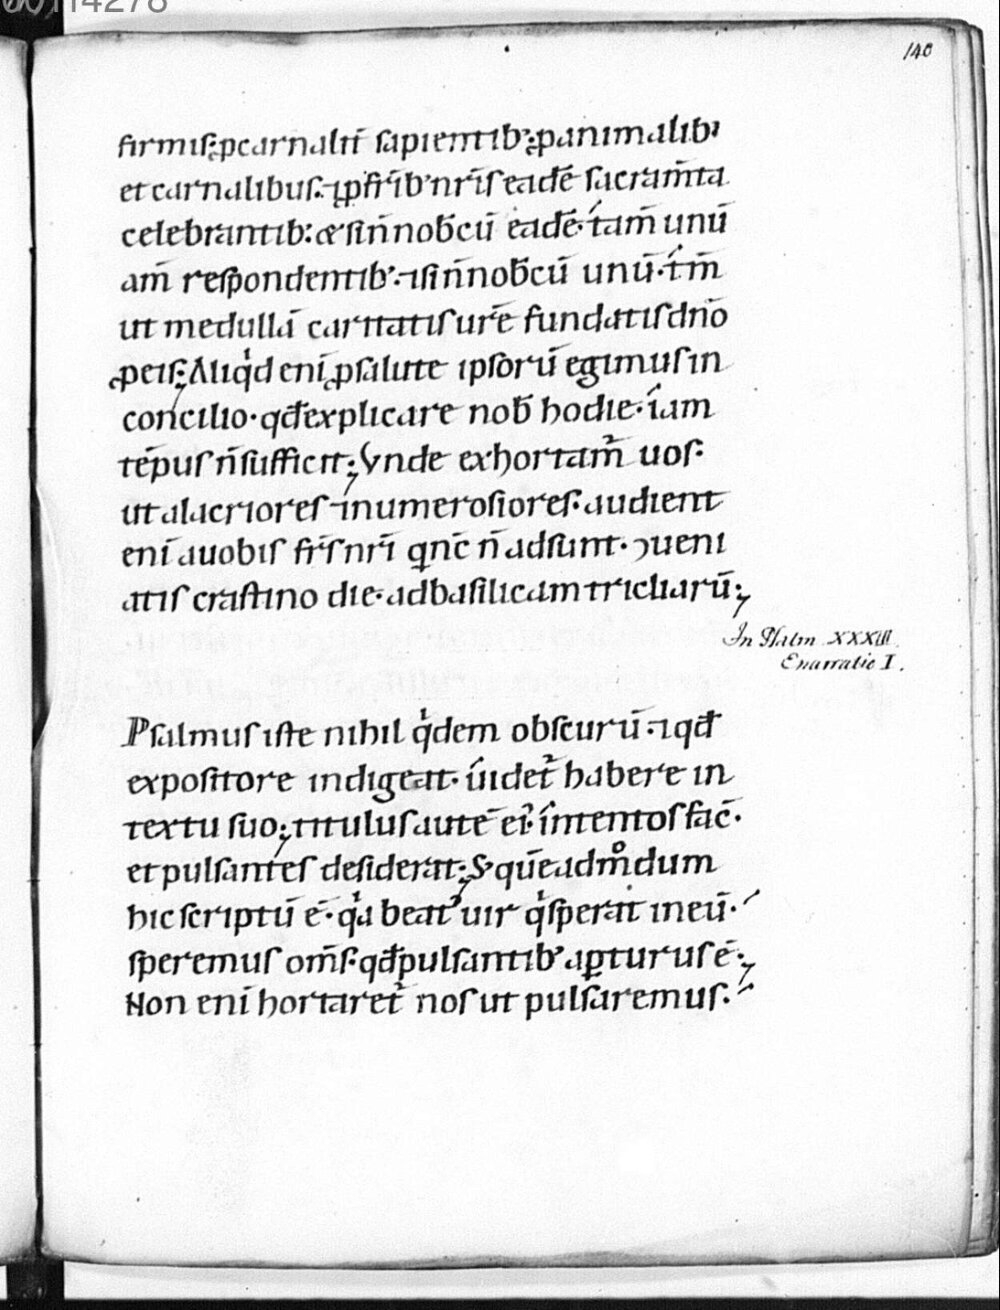 140
firmis; ꝑcarnalit̄ sapientib'; ꝑanimalib'
et carnalibus. ⁊ ꝑfr̄ib' nr̄is eadē sacram̄ta
celebrantib: & si n̄ nob̄cū eadē. tam̄ unū
am̄ respondentib'. ⁊ si n̄ nob̄cū unū. tm̄
ut medullā caritatis ur̄e fundatis dn̄o
ꝓ eis; Aliqͥd enī ꝓ salute ipsorū egimus in
concilio. qd̄ explicare nob̄ hodie. iam
tēpus n̄ sufficit; Vnde exhortam̄ uos.
ut alacriores ⁊ numerosiores. audient
enī a uobis fr̄s nr̄i q nc̄ n̄ adsunt. ↄueni
atis crastino die. ad basilicam tricliarū;
In Psalm XXXIII.
Enarratio I.
Psalmus iste nihil qͥdem obscurū. ⁊ qd̄
expositore indigeat. uidet᷑ habere in
textu suo; titulus autē ei᷑ intentos fac̄.
et pulsantes desiderat; S; quēadmͦdum
hic scriptū ē. qͥa beat' uir qͥ sperat in eū.
speremus om̄s. qd̄ pulsantib' apturus ē;
Non enī hortaret᷑ nos ut pulsaremus.